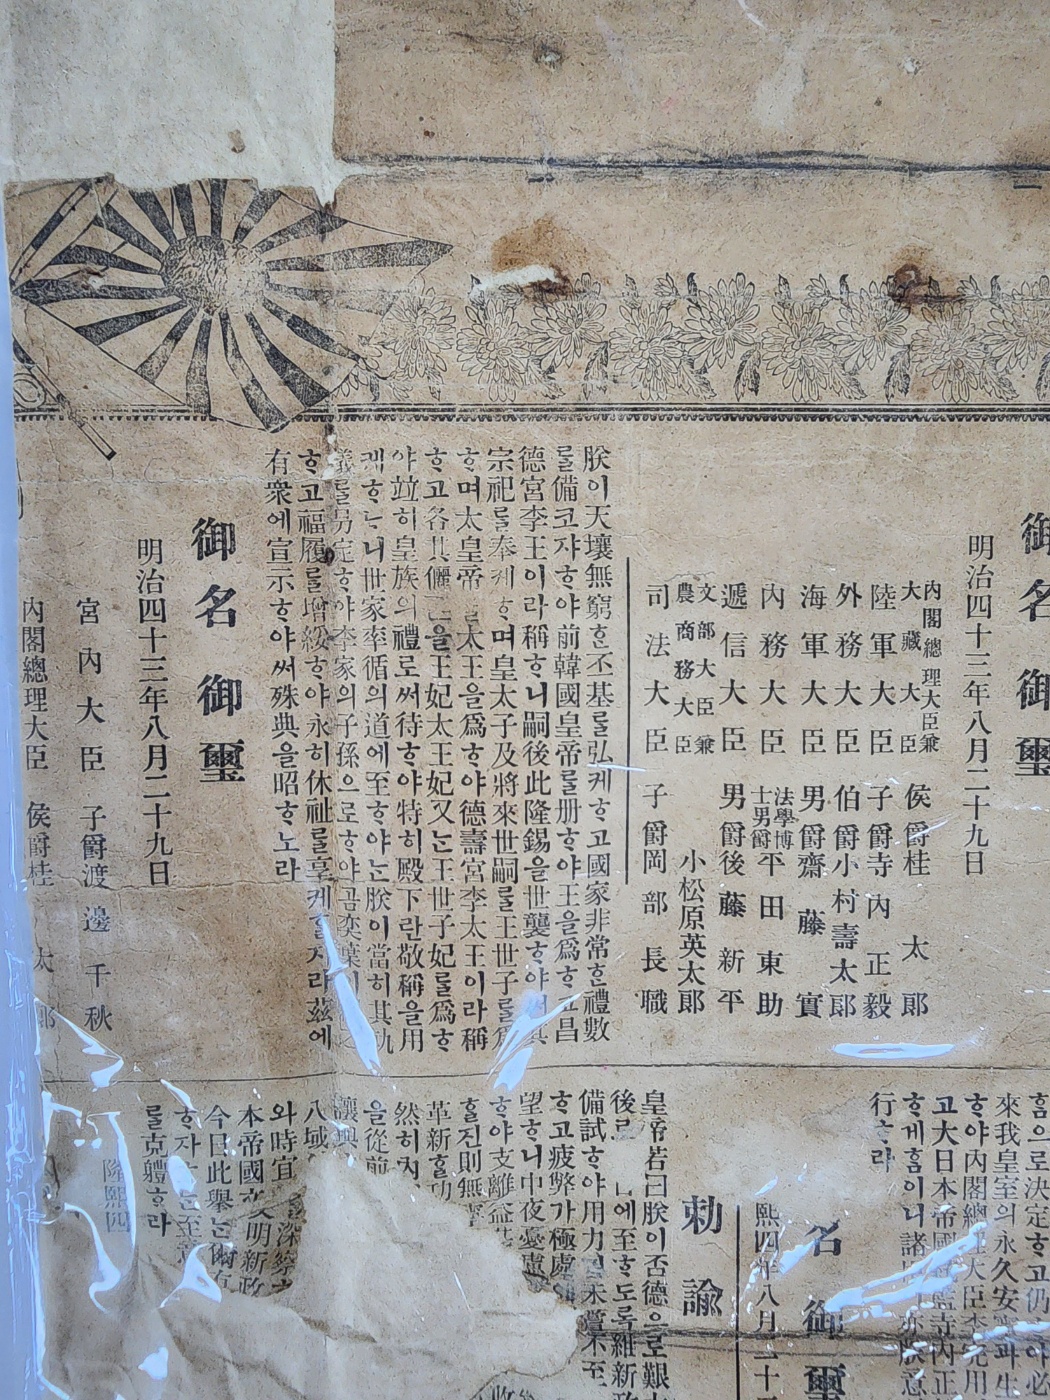 御名御璽
明治四十三年八月二十九日
內閣總理大臣兼
大藏大臣 侯爵桂太郎
陸軍大臣 子爵寺內正毅
外務大臣 伯爵小村壽太郎
海軍大臣 男爵齋藤實
內務大臣 法學博士男爵平田東助
遞信大臣 男爵後藤新平
文部大臣兼
農商務大臣 小松原英太郎
司法大臣 子爵岡部長職
朕이天壤無窮ᄒᆞᆫ丕基를弘케ᄒᆞ고國家非常ᄒᆞᆫ禮數
를備코쟈ᄒᆞ야前韓國皇帝를册ᄒᆞ야王을爲ᄒᆞ고昌
德宮李王이라稱ᄒᆞ니嗣後此隆錫을世襲ᄒᆞ야써其
宗祀를奉케ᄒᆞ며皇太子及將來世嗣를王世子를爲
ᄒᆞ며太皇帝를太王을爲ᄒᆞ야德壽宮李太王이라稱
ᄒᆞ고各其儷匹을王妃太王妃又ᄂᆞᆫ王世子妃를爲ᄒᆞ
야竝히皇族의禮로써待ᄒᆞ야特히殿下란敬稱을用
케ᄒᆞᄂᆞ니世家率循의道에至ᄒᆞ야ᄂᆞᆫ朕이當히其軌
儀를另定ᄒᆞ야李家의子孫으로ᄒᆞ야곰奕葉이
ᄒᆞ고福履를增綏ᄒᆞ야永히休祉를享케ᄒᆞᆯ지라茲에
有衆에宣示ᄒᆞ야써殊典을昭ᄒᆞ노라
御名御璽
明治四十三年八月二十九日
宮內大臣 子爵渡邊千秋
內閣總理大臣 侯爵桂太郎
흠으로決定ᄒᆞ고仍
來我皇室의永久安
ᄒᆞ야內閣總理大臣李完用
고大日本帝國統監寺內正
ᄒᆞ게흠이니諸
行ᄒᆞ라
名御璽
熙四年八月二十
勅諭
皇帝若曰朕이否德으로艱
後에至ᄒᆞ도록維新政
備試ᄒᆞ야用力
ᄒᆞ고疲弊가極處
望ᄒᆞ니中夜憂慮
ᄒᆞ야支離益甚
ᄒᆞᆯ진則無
革新ᄒᆞᆯ功
然히內
을從前
讓與
八域
와時宜深察
本帝國文明新政
今日此擧ᄂᆞᆫ爾有
ᄒᆞ자ᄂᆞᆫ至意
를克軆ᄒᆞ라
隆熙四